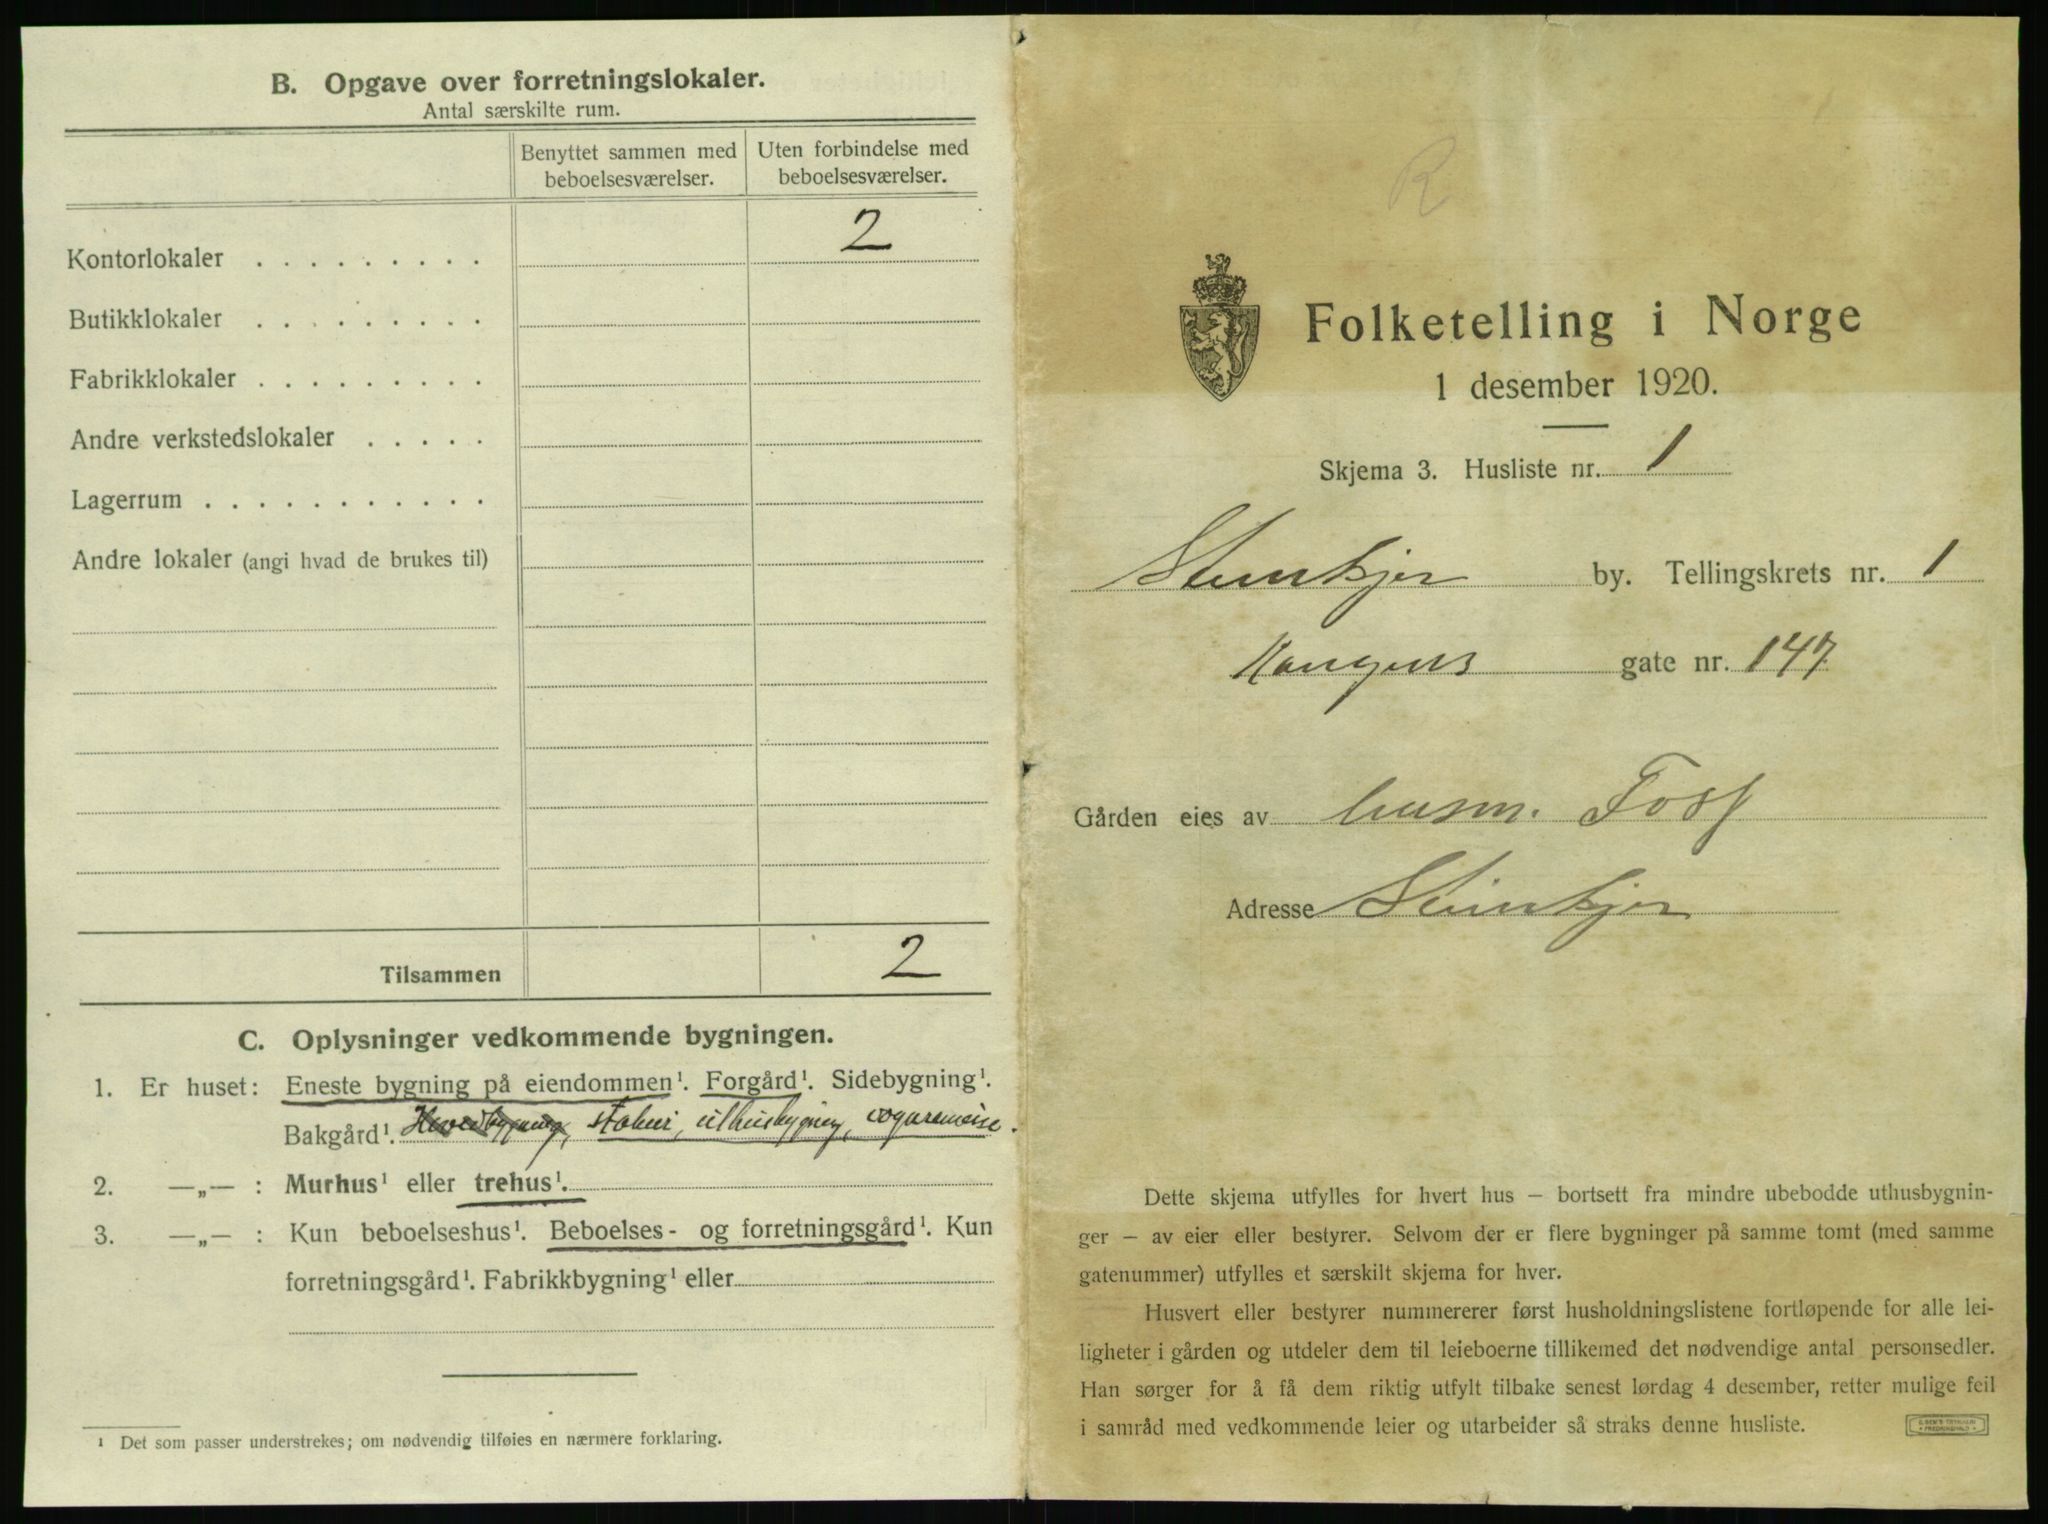 B. Opgave over forretningslokaler.
Antal særskilte rum.
Benyttet sammen med beboelsesværelser.
Uten forbindelse med beboelsesværelser.
Kontorlokaler . . . . . . . . . 2
Butikklokaler . . . . . . . . .
Fabrikklokaler . . . . . . . . .
Andre verkstedslokaler . . . . .
Lagerrum . . . . . . . . . . .
Andre lokaler (angi hvad de brukes til)
Tilsammen 2
C. Oplysninger vedkommende bygningen.
1. Er huset: Eneste bygning på eiendommen¹. Forgård¹. Sidebygning¹.
Bakgård¹. stabur, uthusbygning, vognremise.
2. —„— : Murhus¹ eller trehus¹.
3. —„— : Kun beboelseshus¹. Beboelses- og forretningsgård¹. Kun
forretningsgård¹. Fabrikkbygning¹ eller
¹ Det som passer understrekes; om nødvendig tilføies en nærmere forklaring.
R
Folketelling i Norge
1 desember 1920.
Skjema 3. Husliste nr. 1
Steinkjer by. Tellingskrets nr. 1
Kongens gate nr. 147
Gården eies av Foss
Adresse Steinkjer
Dette skjema utfylles for hvert hus – bortsett fra mindre ubebodde uthusbygnin-
ger – av eier eller bestyrer. Selvom der er flere bygninger på samme tomt (med samme
gatenummer) utfylles et særskilt skjema for hver.
Husvert eller bestyrer nummererer først husholdningslistene fortløpende for alle lei-
ligheter i gården og utdeler dem til leieboerne tillikemed det nødvendige antal personsedler.
Han sørger for å få dem riktig utfylt tilbake senest lørdag 4 desember, retter mulige feil
i samråd med vedkommende leier og utarbeider så straks denne husliste.